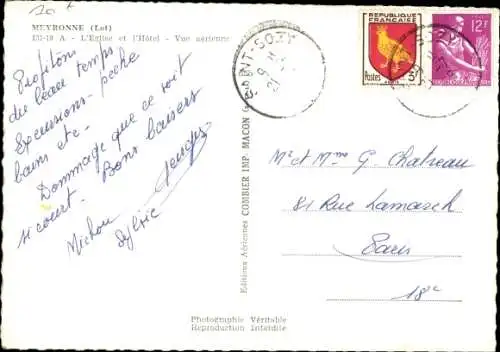 MEYRONNE (Lot)
131-19 A. - L'Eglise et l'Hôtel - Vue aérienne
Profitons
du beau temps
Excursions - pêche
bains etc.
Dommage que ce soit
si court. Bons baisers
Michou
Sylvie
Editions Aériennes COMBIER IMP. MACON
Photographie Véritable
Reproduction Interdite
SAINT-SOZY
REPUBLIQUE
FRANÇAISE
Postes
12F
Mr et Mme G. Chatreau
81 Rue Lamarck
Paris
18e